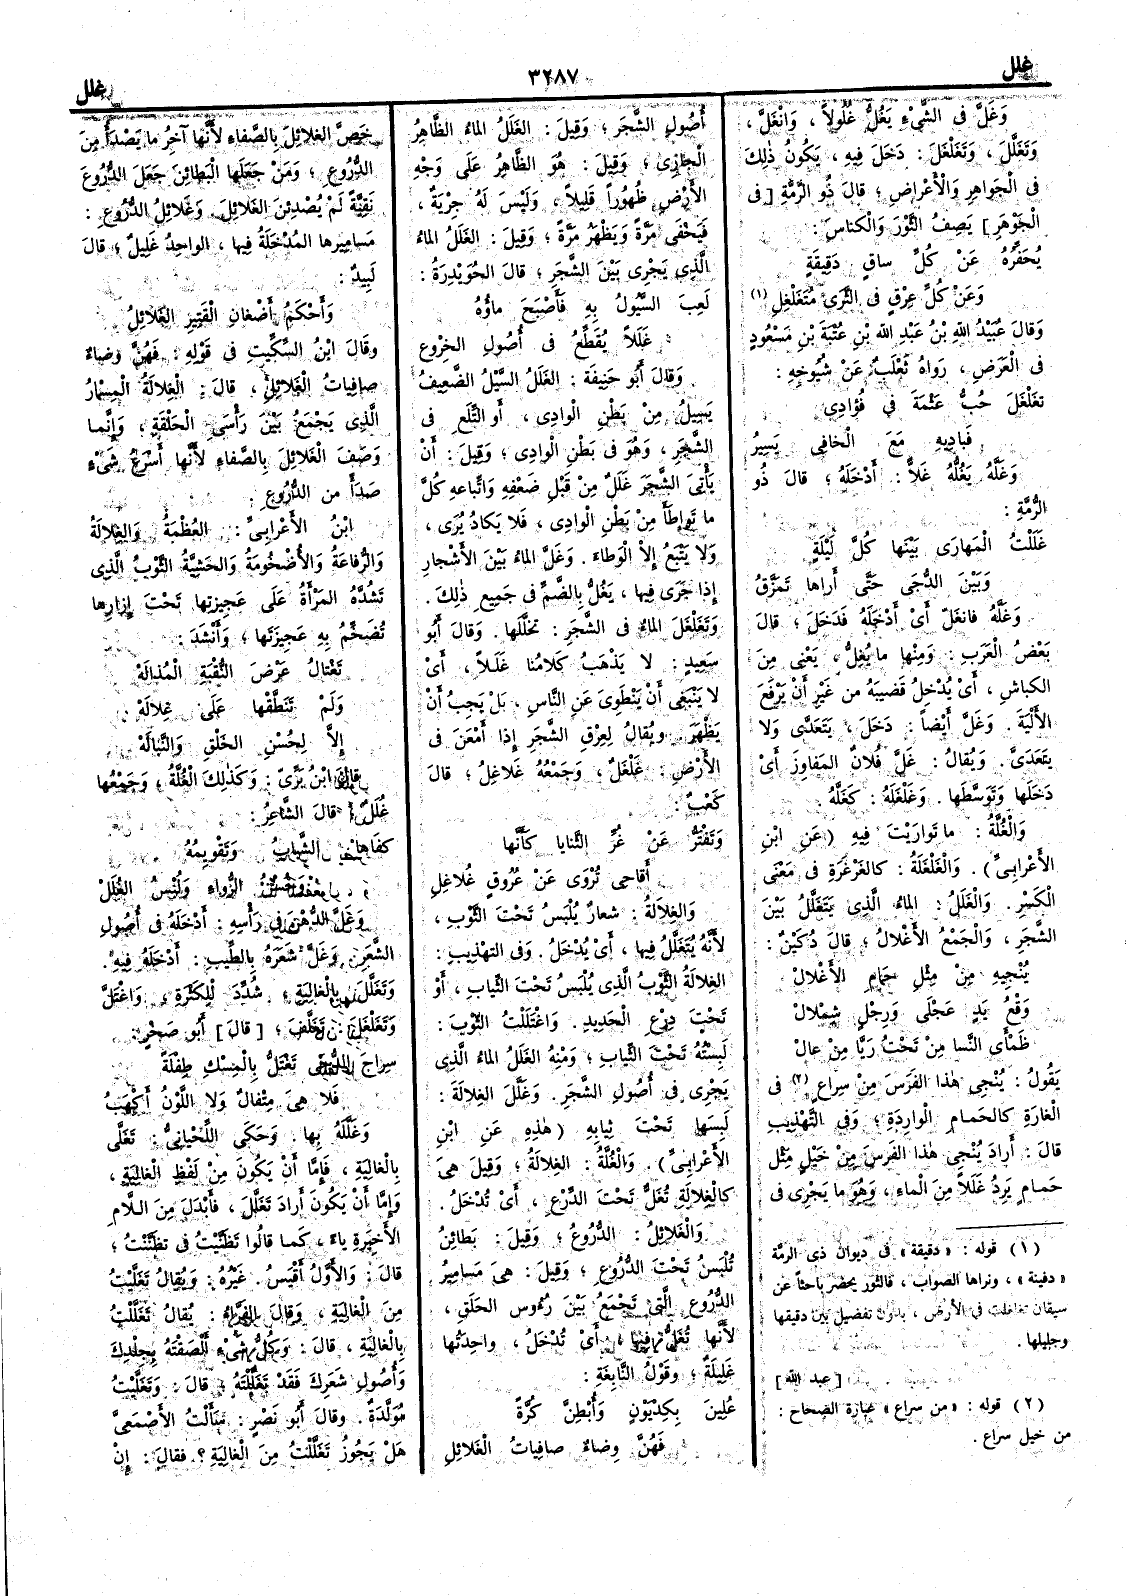 غلل
٣٢٨٧
غلل
وَغَلَّ فى الشَّىْءِ يَغُلُّ غُلُولاً ، وَانْغَلَّ ،
وَتَغَلَّلَ ، وَتَغَلْغَلَ : دَخَلَ فِيهِ ، يَكُونُ ذٰلِكَ
فى الْجَواهِرِ وَالْأَعْراضِ ؛ قالَ ذُو الرُّمَّةِ [ فى
الْجَوْهَرِ ] يَصِفُ الثَّوْرَ وَالْكِناسَ :
يُحَفِّرُهُ عَنْ كُلِّ ساقٍ دَقِيقَةٍ
وَعَنْ كُلِّ عِرْقٍ فى الثَّرَى مُتَغَلْغِلِ (١)
وَقالَ عُبَيْدُ اللهِ بْنُ عَبْدِ اللهِ بْنِ عُتْبَةَ بْنِ مَسْعُودٍ
فى الْعَرَضِ ، رَواهُ ثَعْلَبٌ عَنْ شُيُوخِهِ :
تَغَلْغَلَ حُبُّ عَثْمَةَ فى فُؤادِى
فَبادِيهِ مَعَ الْخافِى يَسِيرُ
وَغَلَّهُ يَغُلُّهُ غَلاًّ : أَدْخَلَهُ ؛ قالَ ذُو
الرُّمَّةِ :
غَلَلْتُ الْمَهارَى بَيْنَها كُلَّ لَيْلَةٍ
وَبَيْنَ الدُّجَى حَتَّى أَراها تَمَزَّقُ
وَغَلَّهُ فانْغَلَّ أَىْ أَدْخَلَهُ فَدَخَلَ ؛ قالَ
بَعْضُ الْعَرَبِ : وَمِنْها ما يُغِلُّ ، يَعْنِى مِنَ
الكِباشِ ، أَىْ يُدْخِلُ قَضِيبَهُ من غَيْرِ أَنْ يَرْفَعَ
الأَلْيَةَ . وَغَلَّ أَيْضاً : دَخَلَ ، يَتَعَدَّى وَلا
يَتَعَدَّى . وَيُقالُ : غَلَّ فُلانٌ المَفاوِزَ أَىْ
دَخَلَها وَتَوَسَّطَها . وَغَلْغَلَهُ : كَغَلَّهُ .
وَالْغُلَّةُ : ما تَوارَيْتَ فِيهِ ( عَنِ ابْنِ
الأَعْرابِىِّ ) . وَالْغَلْغَلَةُ : كالْغَرْغَرَةِ فى مَعْنَى
الْكَسْرِ . وَالْغَلَلُ : الماءُ الَّذِى يَتَغَلَّلُ بَيْنَ
الشَّجَرِ ، وَالْجَمْعُ الأَغْلالُ ؛ قالَ دُكَيْنٌ :
يُنْجِيهِ مِنْ مِثْلِ حَمامِ الأَغْلالْ
وَقْعُ يَدٍ عَجْلَى وَرِجْلٍ شِمْلالْ
ظَمْأَى النَّسا مِنْ تَحْتُ رَيَّا مِنْ عالْ
يَقُولُ : يُنْجِى هٰذا الفَرَسَ مِنْ سِراعٍ (٢) فى
الْغارَةِ كالحَمامِ الْوارِدَةِ ؛ وَفى التَّهْذِيبِ
قالَ : أَرادَ يُنْجِى هٰذا الفَرَسَ مِنْ خَيْلٍ مِثْلِ
حَمامٍ يَرِدُ غَلَلاً مِنَ الْماءِ ، وَهُوَ ما يَجْرِى فى
(١) قوله : « دقيقة » فى ديوان ذى الرمّة
« دفينة » ، ونراها الصواب ، فالثور يحضر باحثاً عن
سيقان تغلغلت فى الأرض ، بدون تفضيل بين دقيقها
وجليلها .
[ عبد الله ]
(٢) قوله : « من سراع » عبارة الصحاح :
من خيل سراع .
أُصُولِ الشَّجَرِ ؛ وَقِيلَ : الغَلَلُ الماءُ الظَّاهِرُ
الْجارِى ؛ وَقِيلَ : هُوَ الظَّاهِرُ عَلَى وَجْهِ
الأَرْضِ ظُهُوراً قَلِيلاً ، وَلَيْسَ لَهُ جِرْيَةٌ ،
فَيَخْفَى مَرَّةً وَيَظْهَرُ مَرَّةً ؛ وَقِيلَ : الغَلَلُ الماءُ
الَّذِى يَجْرِى بَيْنَ الشَّجَرِ ؛ قالَ الحُوَيْدِرَةُ :
لَعِبَ السُّيُولُ بِهِ فَأَصْبَحَ ماؤُهُ
غَلَلاً يُقَطَّعُ فى أُصُولِ الخِرْوعِ
وَقالَ أَبُو حَنِيفَةَ : الغَلَلُ السَّيْلُ الضَّعِيفُ
يَسِيلُ مِنْ بَطْنِ الْوادِى ، أَوِ التَّلَعِ فى
الشَّجَرِ ، وَهُوَ فى بَطْنِ الْوادِى ؛ وَقِيلَ : أَنْ
يَأْتِىَ الشَّجَرَ غَلَلٌ مِنْ قِبَلِ ضَعْفِهِ وَاتِّباعِهِ كُلَّ
ما تَواطَأَ مِنْ بَطْنِ الْوادِى ، فَلا يَكادُ يُرَى ،
وَلا يَتْبَعُ إِلاَّ الْوَطاءَ . وَغَلَّ الماءُ بَيْنَ الأَشْجارِ
إِذا جَرَى فِيها ، يَغُلُّ بِالضَّمِّ فى جَمِيعِ ذٰلِكَ .
وَتَغَلْغَلَ الماءُ فى الشَّجَرِ : تَخَلَّلَها . وَقالَ أَبُو
سَعِيدٍ : لا يَذْهَبُ كَلامُنا غَلَلاً ، أَىْ
لا يَنْبَغِى أَنْ يَنْطَوِىَ عَنِ النَّاسِ ، بَلْ يَجِبُ أَنْ
يَظْهَرَ . وَيُقالُ لِعِرْقِ الشَّجَرِ إِذا أَمْعَنَ فى
الأَرْضِ : غَلْغَلٌ ، وَجَمْعُهُ غَلاغِلُ ؛ قالَ
كَعْبٌ :
وَتَفْتَرُّ عَنْ غُرِّ الثَّنايا كَأَنَّها
أَقاحِى تُرْوَى عَنْ عُرُوقٍ غُلاغِلِ
وَالغِلالَةُ : شِعارٌ يُلْبَسُ تَحْتَ الثَّوْبِ ،
لأَنَّهُ يُتَغَلَّلُ فِيها ، أَىْ يُدْخَلُ . وَفى التَّهْذِيبِ :
الغِلالَةُ الثَّوْبُ الَّذِى يُلْبَسُ تَحْتَ الثِّيابِ ، أَوْ
تَحْتَ دِرْعِ الْحَدِيدِ . وَاغْتَلَلْتُ الثَّوْبَ :
لَبِسْتُهُ تَحْتَ الثِّيابِ ؛ وَمِنْهُ الغَلَلُ الماءُ الَّذِى
يَجْرِى فى أُصُولِ الشَّجَرِ . وَغَلَّلَ الغِلالَةَ :
لَبِسَها تَحْتَ ثِيابِهِ ( هٰذِهِ عَنِ ابْنِ
الأَعْرابِىِّ ) . وَالْغُلَّةُ : الغِلالَةُ ؛ وَقِيلَ هِىَ
كالْغِلالَةِ تُغَلُّ تَحْتَ الدِّرْعِ ، أَىْ تُدْخَلُ .
وَالْغَلائِلُ : الدُّرُوعُ ؛ وَقِيلَ : بَطائِنُ
تُلْبَسُ تَحْتَ الدُّرُوعِ ؛ وَقِيلَ : هِىَ مَسامِيرُ
الدُّرُوعِ الَّتِى تَجْمَعُ بَيْنَ رُءُوسِ الحَلَقِ ،
لأَنَّها تُغَلُّ فِيها ، أَىْ تُدْخَلُ ، واحِدَتُها
غَلِيلَةٌ ؛ وَقَوْلُ النَّابِغَةِ :
عُلِينَ بِكِدْيَوْنٍ وَأُبْطِنَّ كُرَّةً
فَهُنَّ وِضاءٌ صافِياتُ الْغَلائِلِ
خَصَّ الغَلائِلَ بِالصَّفاءِ لأَنَّها آخِرُ ما يَصْدَأُ مِنَ
الدُّرُوعِ ؛ وَمَنْ جَعَلَها الْبَطائِنَ جَعَلَ الدُّرُوعَ
نَقِيَّةً لَمْ يُصْدِئْنَ الغَلائِلَ . وَغَلائِلُ الدُّرُوعِ :
مَسامِيرُها المُدْخَلَةُ فِيها ، الواحِدُ غَلِيلٌ ؛ قالَ
لَبِيدٌ :
وَأَحْكَمَ أَضْغانَ الْقَتِيرِ الغَلائِلُ
وقالَ ابْنُ السِّكِّيتِ فى قَوْلِهِ : فَهُنَّ وِضاءٌ
صافِياتُ الْغَلائِلِ ، قالَ : الغِلالَةُ الْمِسْمارُ
الَّذِى يَجْمَعُ بَيْنَ رَأْسَىِ الْحَلْقَةِ ، وَإِنَّما
وَصَفَ الْغَلائِلَ بِالصَّفاءِ لأَنَّها أَسْرَعُ شَىْءٍ
صَدَأً من الدُّرُوعِ .
ابْنُ الأَعْرابِىِّ : العُظْمَةُ وَالغِلالَةُ
وَالرُّفاعَةُ وَالأُضْخُومَةُ وَالحَشِيَّةُ الثَّوْبُ الَّذِى
تَشُدُّهُ الْمَرْأَةُ عَلَى عَجِيزَتِها تَحْتَ إِزارِها
تُضَخِّمُ بِهِ عَجِيزَتَها ؛ وَأَنْشَدَ :
تَغْتالُ عَرْضَ النُّقْبَةِ الْمُذالَهْ
وَلَمْ تَنَطَّقْها عَلَى غِلالَهْ
إِلاَّ لِحُسْنِ الخَلْقِ وَالنَّبالَهْ
قالَ ابْنُ بَرِّىّ : وَكَذٰلِكَ الْغُلَّةُ ، وَجَمْعُها
غُلَلٌ ؛ قالَ الشَّاعِرُ :
كَفاها الشَّبابُ وَتَقْوِيمُهُ
وَحُسْنُ الرُّواءِ وَلُبْسُ الغُلَلْ
وَغَلَّ الدُّهْنَ فى رَأْسِهِ : أَدْخَلَهُ فى أُصُولِ
الشَّعَرِ . وَغَلَّ شَعَرَهُ بِالطِّيبِ : أَدْخَلَهُ فِيهِ .
وَتَغَلَّلَ بِالْغالِيَةِ ، شُدِّدَ لِلْكَثْرَةِ ، وَاغْتَلَّ
وَتَغَلْغَلَ : تَغَلَّفَ ؛ [ قالَ ] أَبُو صَخْرٍ :
سِراجُ الدُّجَى تَغْتَلُّ بِالْمِسْكِ طِفْلَةٌ
فَلا هِىَ مِتْفالٌ وَلا اللَّوْنُ أَكْهَبُ
وَغَلَّلَهُ بِها . وَحَكَى اللِّحْيانِىُّ : تَغَلَّى
بِالْغالِيَةِ ، فَإِمَّا أَنْ يَكُونَ مِنْ لَفْظِ الْغالِيَةِ ،
وَإِمَّا أَنْ يَكُونَ أَرادَ تَغَلَّلَ ، فَأَبْدَلَ مِنَ اللاَّمِ
الأَخِيرَةِ ياءً ، كَما قالُوا تَظَنَّيْتُ فى تَظَنَّنْتُ ؛
قالَ : وَالأَوَّلُ أَقْيَسُ . غَيْرُهُ : وَيُقالُ تَغَلَّيْتُ
مِنَ الْغالِيَةِ ، وَقالَ الفَرَّاءُ : يُقالُ تَغَلَّلْتُ
بِالْغالِيَةِ ، قالَ : وَكُلُّ شَىْءٍ أَلْصَقْتَهُ بِجِلْدِكَ
وَأُصُولِ شَعَرِكَ فَقَدْ تَغَلَّلْتَهُ ؛ قالَ : وَتَغَلَّيْتُ
مُوَلَّدَةٌ . وَقالَ أَبُو نَصْرٍ : سَأَلْتُ الأَصْمَعِىَّ
هَلْ يَجُوزُ تَغَلَّلْتُ مِنَ الْغالِيَةِ ؟ فَقالَ : إِنْ